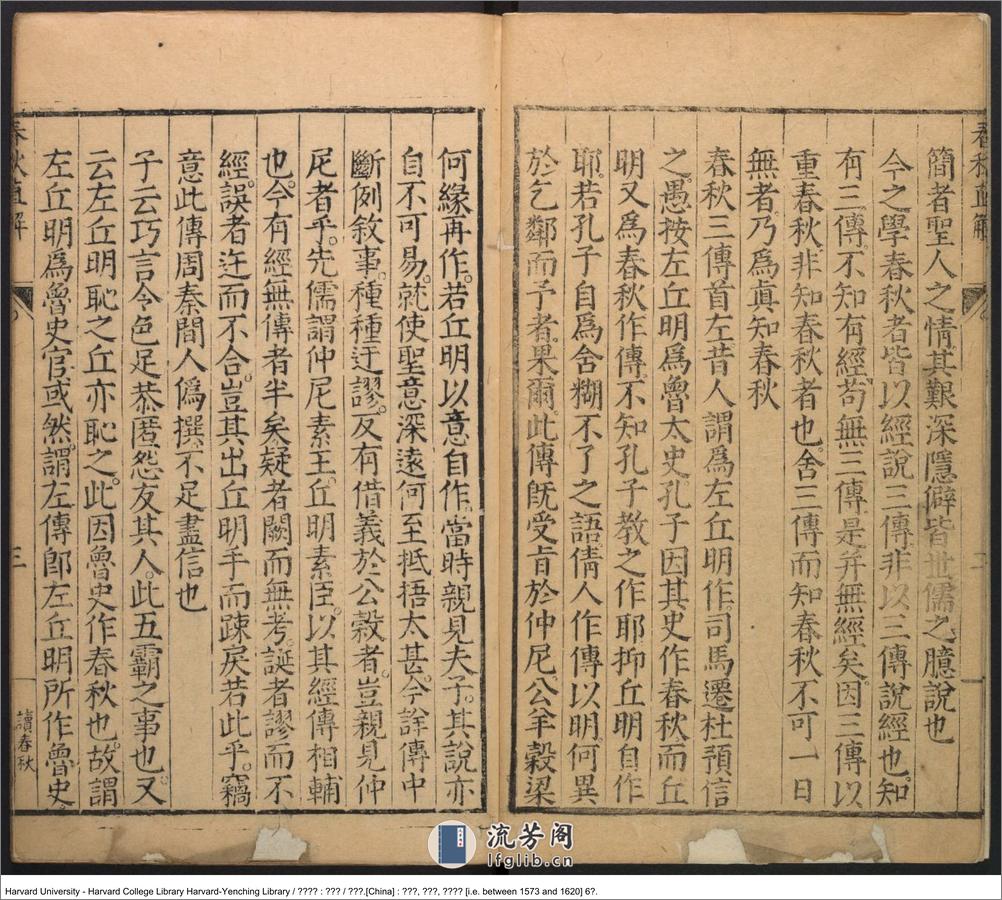 春秋直解
簡者聖人之情其艱深隱僻皆世儒之臆說也
今之學春秋者皆以經說三傳非以三傳說經也知
有三傳不知有經苟無三傳是并無經矣因三傳以
重春秋非知春秋者也舍三傳而知春秋不可一日
無者乃爲真知春秋
春秋三傳首左昔人謂爲左丘明作司馬遷杜預信
之愚按左丘明爲魯太史孔子因其史作春秋而丘
明又爲春秋作傳不知孔子教之作耶抑丘明自作
耶若孔子自爲含糊不了之語倩人作傳以明何異
於乞鄰而予者果爾此傳旣受㫖於仲尼公羊穀梁
何緣再作若丘明以意自作當時親見夫子其說亦
自不可易就使聖意深遠何至抵捂太甚今詳傳中
斷例敘事種種迂謬反有借義於公穀者豈親見仲
尼者乎先儒謂仲尼素王丘明素臣以其經傳相輔
也今有經無傳者半矣疑者闕而無考誕者謬而不
經誤者迕而不合豈其出丘明手而踈戾若此乎竊
意此傳周秦間人僞撰不足盡信也
子云巧言令色足恭匿怨友其人此五霸之事也又
云左丘明恥之丘亦恥之此因魯史作春秋也故謂
左丘明爲魯史官或然謂左傳即左丘明所作魯史
春秋直解
三
讀春秋
流芳阁
lfglib.cn
Harvard University - Harvard College Library Harvard-Yenching Library / ???? : ??? / ???.[China] : ???, ???, ???? [i.e. between 1573 and 1620] 6?.